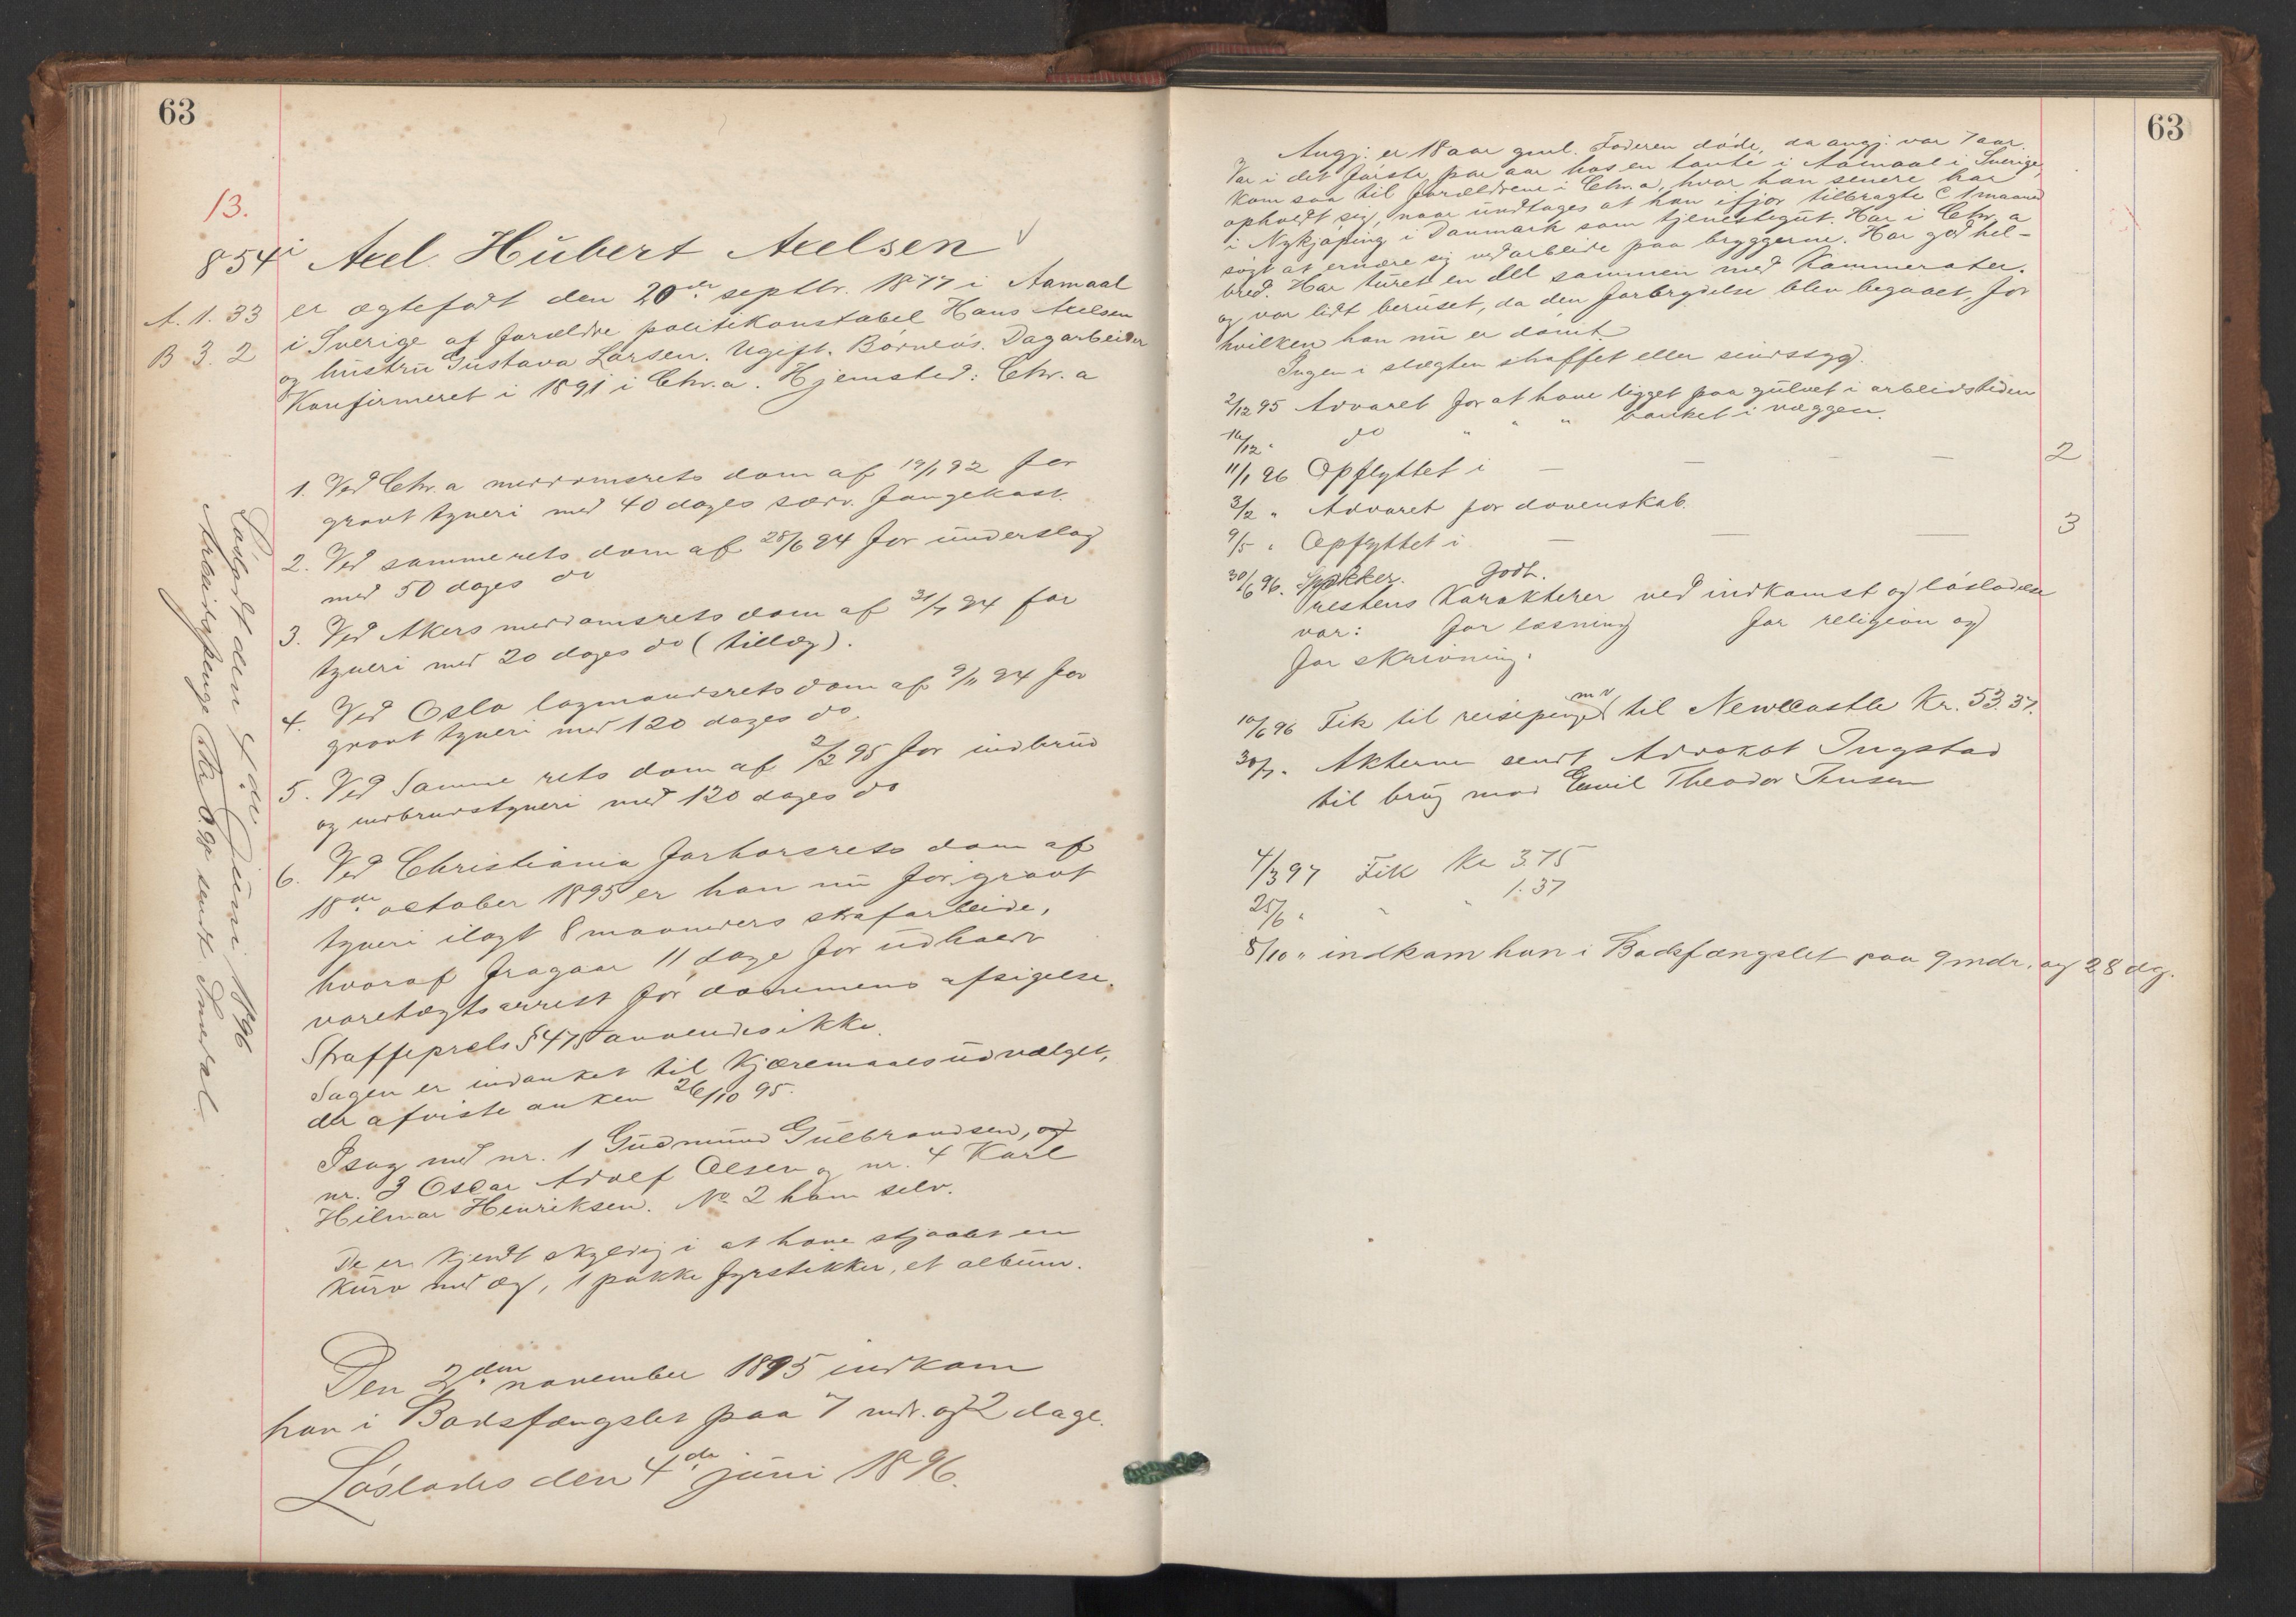 63
13.
854 i Axel Hubert Axelsen
A. 1. 33
B 3. 2
er ægtefødt den 20de septbr. 1877 i Aamaal
i Sverige af forældre politikonstabel Hans Axelsen
og hustru Gustava Larsen. Ugift. Børnløs. Dagarbeider
Konfirmeret i 1891 i Chr.a. Hjemsted: Chr.a
1. Ved Chr.a meddomsrets dom af 19/1 92 for
grovt tyveri med 40 dages sædv. fangekost.
2. Ved samme rets dom af 28/6 94 for underslag
med 50 dages do
3. Ved Akers meddomsrets dom af 31/7 94 for
tyveri med 20 dages do (tillæg).
4. Ved Oslo lagmandsrets dom af 9/11 94 for
grovt tyveri med 120 dages do.
5. Ved Samme rets dom af 2/2 95 for indbrud
og indbrudstyveri med 120 dages do
6. Ved Christiania forhørsrets dom af
18de october 1895 er han nu for grovt
tyveri ilagt 8 maaneders strafarbeide,
hvoraf fragaar 11 dage for udholdt
varetægtsarrest før dommens afsigelse.
Straffeprcls § 475 anvendes ikke.
Sagen er indanket til Kjæremaalsudvalget,
der afviste anken 26/10 95.
I sag med nr. 1 Gudmund Gulbrandsen, og
nr. 3 Oscar Adolf Olsen og nr. 4 Karl
Hilmar Henriksen. No 2 ham selv.
De er kjendt skyldig i at have stjaalet en
kurv med æg, 1 pakke fyrstikker, et album.
Den 2den november 1895 indkom
han i Bodsfængslet paa 7 mdr. og 2 dage.
Løslades den 4de juni 1896.
Løsladt den 4de Juni 1896
Arbeidspenge sendt
63
Angj. er 18 aar gml. Faderen døde, da angj. var 7 aar.
Var i det første par aar hos en tante i Aamaal i Sverige,
kom saa til forældrene i Chr.a, hvor han senere har
opholdt sig, naar undtages at han ifjor tilbragte c 1 maaned
i Nykjøping i Danmark som tjenestegut. Har i Chr.a
søgt at ernære sig ved arbeide paa bryggerne. Har god hel-
bred. Har turet en del sammen med Kammerater.
og var lidt beruset, da den forbrydelse blev begaaet, for
hvilken han nu er dømt.
Ingen i slægten straffet eller sindssyg.
2/12 95 Advaret for at have ligget paa gulvet i arbeidstiden
16/12 " do " " " banket i væggen.
11/1 96 Opflyttet i — — — 2
3/2 " Advaret for dovenskab.
9/5 " Opflyttet i — — — 3
30/6 96. Godt.
Prestens Karakterer ved indkomst og løsladelse
var: for læsning for religion og
for skrivning.
10/6 96 Fik til reisepenge mv til NewCastle Kr. 53.37.
30/7 " Akterne sendt Advokat Ingstad
til brug mod Emil Theodor Jensen
4/3 97 Fik Kr 3.75
25/6 " " " 1.37
8/10 " indkom han i Bodsfængslet paa 9 mdr. og 28 dg.